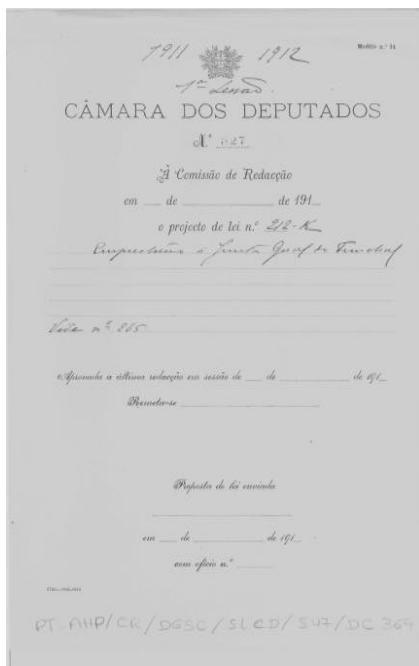 1911 1912
Modêlo n.º 14
1ª Sessão
CÂMARA DOS DEPUTADOS
N.º 327
Á Comissão de Redacção
em ___ de ___ de 191__
o projecto de lei n.º 212-K
Emprestimo á Junta Geral do Funchal
Vide nº 265
Aprovada a última redacção em sessão de ___ de ___ de 191__
Remeta-se
Proposta de lei enviada
em ___ de ___ de 191__
com oficio n.º
PT-AHP/CR/DGSC/SLCD/S47/DC369